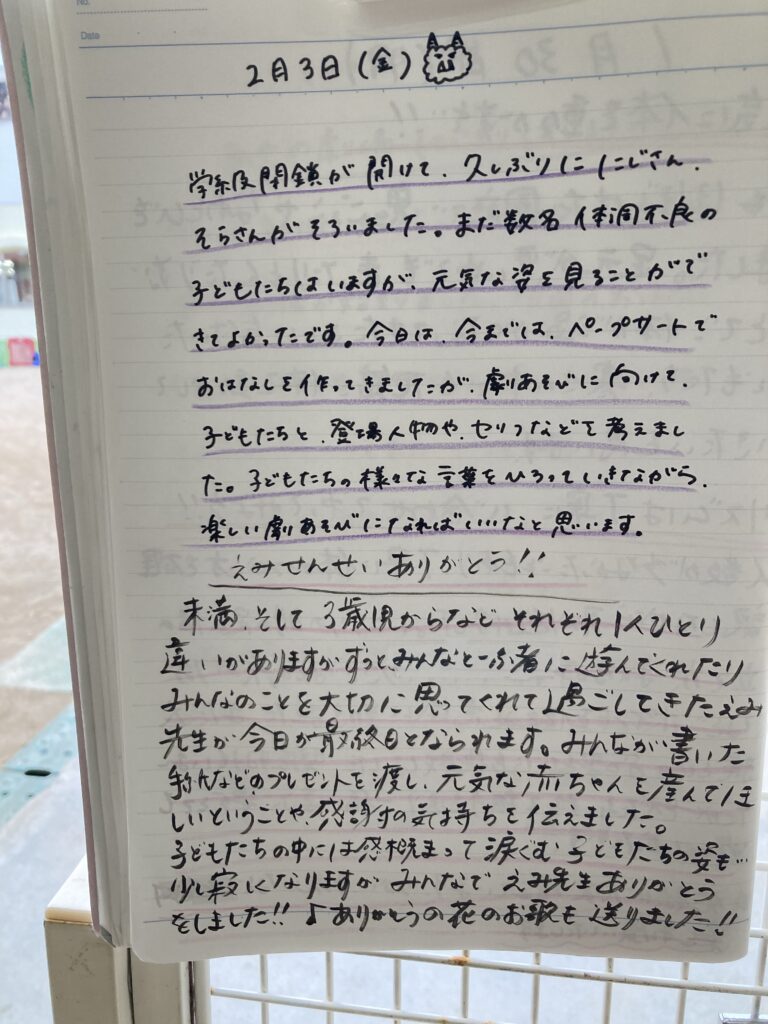 No.
Date
2月3日(金)
学級閉鎖が開けて、久しぶりににじさん、
そらさんがそろいました。まだ数名体調不良の
子どもたちはいますが、元気な姿を見ることがで
きてよかったです。今日は、今までは、ペープサートで
おはなしを作ってきましたが、劇あそびに向けて、
子どもたちと、登場人物や、セリフなどを考えまし
た。子どもたちの様々な言葉をひろっていきながら、
楽しい劇あそびになればいいなと思います。
えみせんせいありがとう!!
未満、そして3歳児からなど それぞれ1人ひとり
違いがありますがずっとみんなと一緒に遊んでくれたり
みんなのことを大切に思ってくれて過ごしてきたえみ
先生が今日が最終日となられます。みんなが書いた
などのプレゼントを渡し、元気な赤ちゃんを産んでほ
しいということや、感謝の気持ちを伝えました。
子どもたちの中には感極まって涙ぐむ子どもたちの姿も…
少し寂しくなりますが みんなで えみ先生ありがとう
をしました!! ♪ありがとうの花のお歌も送りました!!